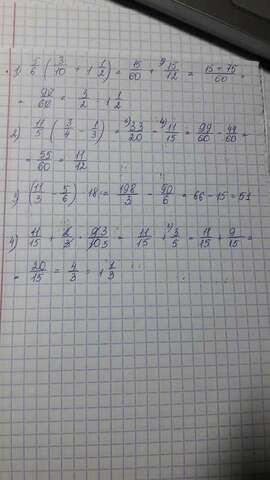 1) 5/6 (3/10 + 1 1/2) = 15/60 + 5) 15/12 = 15+75/60 =
= 90/60 = 3/2 = 1 1/2
2) 11/5 (3/4 - 1/3) = 3) 33/20 - 4) 11/15 = 99/60 - 44/60 =
= 55/60 = 11/12
3) (11/3 - 5/6) 18 = 198/3 - 90/6 = 66 - 15 = 51
4) 11/15 + 2/3 · 9/10 = 11/15 + 3) 3/5 = 11/15 + 9/15 =
= 20/15 = 4/3 = 1 1/3